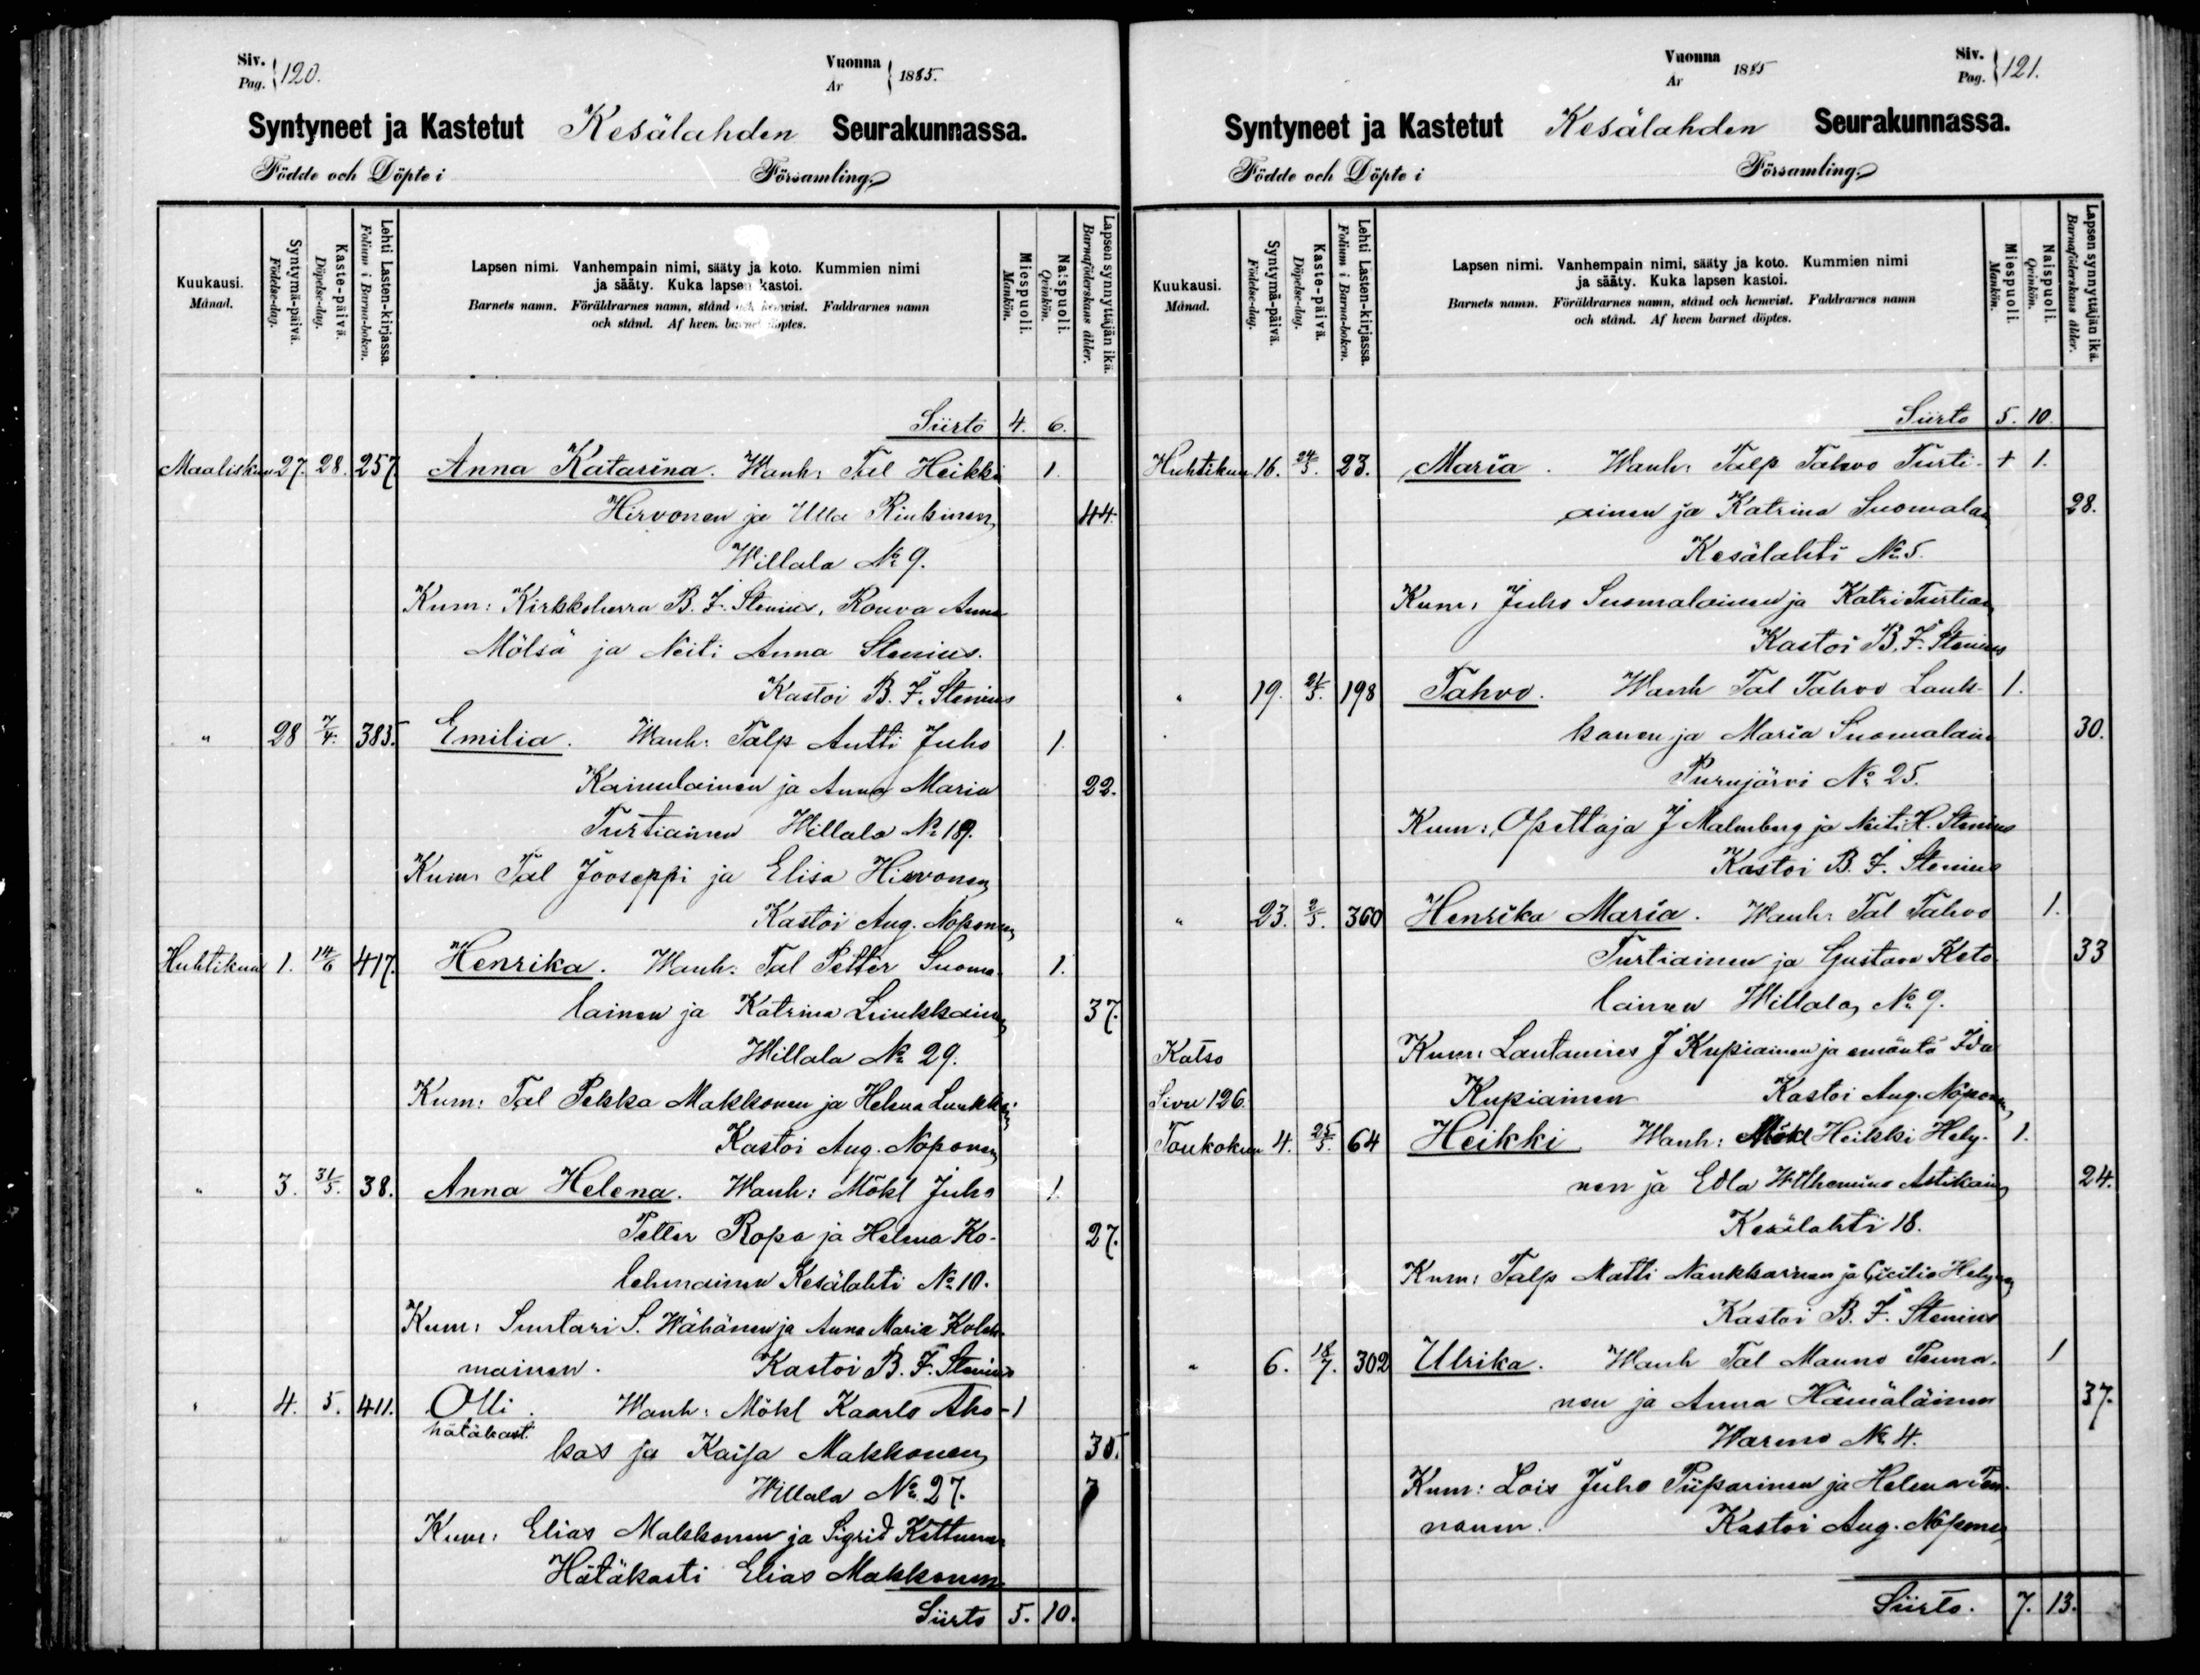 Siv.
Pag. 120.
Vuonna
År 1885.
Syntyneet ja Kastetut Kesälahden Seurakunnassa.
Födde och Döpte i Församling.
Kuukausi.
Månad.
Syntymä-päivä.
Födelse-dag.
Kaste-päivä.
Döpelse-dag.
Lehti Lasten-kirjassa.
Folium i Barna-boken.
Lapsen nimi. Vanhempain nimi, sääty ja koto. Kummien nimi
ja sääty. Kuka lapsen kastoi.
Barnets namn. Föräldrarnes namn, stånd och hemvist. Faddrarnes namn
och stånd. Af hvem barnet döptes.
Miespuoli.
Mankön.
Naispuoli.
Qvinkön.
Lapsen synnyttäjän ikä.
Barnaföderskans ålder.
Siirto 4. 6.
Maaliskuu 27. 28. 257. Anna Katarina. Wanh: Tal Heikki 1.
Hirvonen ja Ulla 44.
Willala No 9.
Kum: Kirkkoherra B. F. Stenius, Rouva Anna
Mölsä ja Neiti Anna Stenius.
Kastoi B. F. Stenius
" 28 7/4. 385. Emilia. Wanh: Talp Antti Juho 1.
Kainulainen ja Anna Maria 22.
Turtiainen Willala No 19.
Kum: Tal Jooseppi ja Elisa Hirvonen
Kastoi Aug. Noponen
Huhtikuu 1. 14/6 417. Henrika. Wanh: Tal Petter Suoma- 1.
lainen ja Katrina Luukkainen 37.
Willala No 29.
Kum: Tal Pekka Makkonen ja Helena
Kastoi Aug. Noponen
" 3. 31/5. 38. Anna Helena. Wanh: Mökl Juho 1.
Petter Ropo ja Helena Ko- 27.
lehmainen Kesälahti No 10.
Kum: Suntari S. Wähänen ja Anna Maria Koleh-
mainen. Kastoi B. F. Stenius
" 4. 5. 411. Olli. Wanh: Mökl Kaarlo Aho- 1
hätäkast.
kas ja Kaisa Makkonen 35.
Willala No 27.
Kum: Elias Makkonen ja Sigrid Kettunen
Hätäkasti Elias Makkonen
Siirto 5. 10.
Vuonna
År 1885
Siv.
Pag. 121.
Syntyneet ja Kastetut Kesälahden Seurakunnassa.
Födde och Döpte i Församling.
Kuukausi.
Månad.
Syntymä-päivä.
Födelse-dag.
Kaste-päivä.
Döpelse-dag.
Lehti Lasten-kirjassa.
Folium i Barna-boken.
Lapsen nimi. Vanhempain nimi, sääty ja koto. Kummien nimi
ja sääty. Kuka lapsen kastoi.
Barnets namn. Föräldrarnes namn, stånd och hemvist. Faddrarnes namn
och stånd. Af hvem barnet döptes.
Miespuoli.
Mankön.
Naispuoli.
Qvinkön.
Lapsen synnyttäjän ikä.
Barnaföderskans ålder.
Siirto 5. 10.
Huhtikuu 16. 24/5. 23. Maria. Wanh: Talp Tahvo Turti- + 1.
ainen ja Katrina Suomalan 28.
Kesälahti No 5.
Kum: Juho Suomalainen ja Katri Turtian
Kastoi B. F. Stenius
" 19. 21/5. 198 Tahvo. Wanh Tal Tahvo Lauk- 1.
kanen ja Maria Suomalain 30.
Purujärvi No 25.
Kum: Opettaja J Malmberg ja Neiti H. Stenius
Kastoi B. F. Stenius
" 23. 2/5. 360 Henrika Maria. Wanh: Tal Tahvo 1.
Turtiainen ja Gustava Keto- 33
lainen Willala No 9.
Katso
Kum: Lautamies J Kupiainen ja emäntä Ida
Sivu 126.
Kupiainen Kastoi Aug. Noponen
Toukokuu 4. 25/5. 64 Heikki Wanh: Mökl Heikki Hely- 1.
nen ja Edla Wilhemina Astikain 24.
Kesälahti 18.
Kum: Talp Matti Naukkarinen ja Cicilia Helynen
Kastoi B. F. Stenius
" 6. 18/7. 302 Ulrika. Wanh Tal Mauno Penna- 1
nen ja Anna Hämäläinen 37.
Warmo No 4.
Kum: Lois Juho Piiparinen ja Helena Pen-
nanen. Kastoi Aug. Noponen
Siirto. 7. 13.